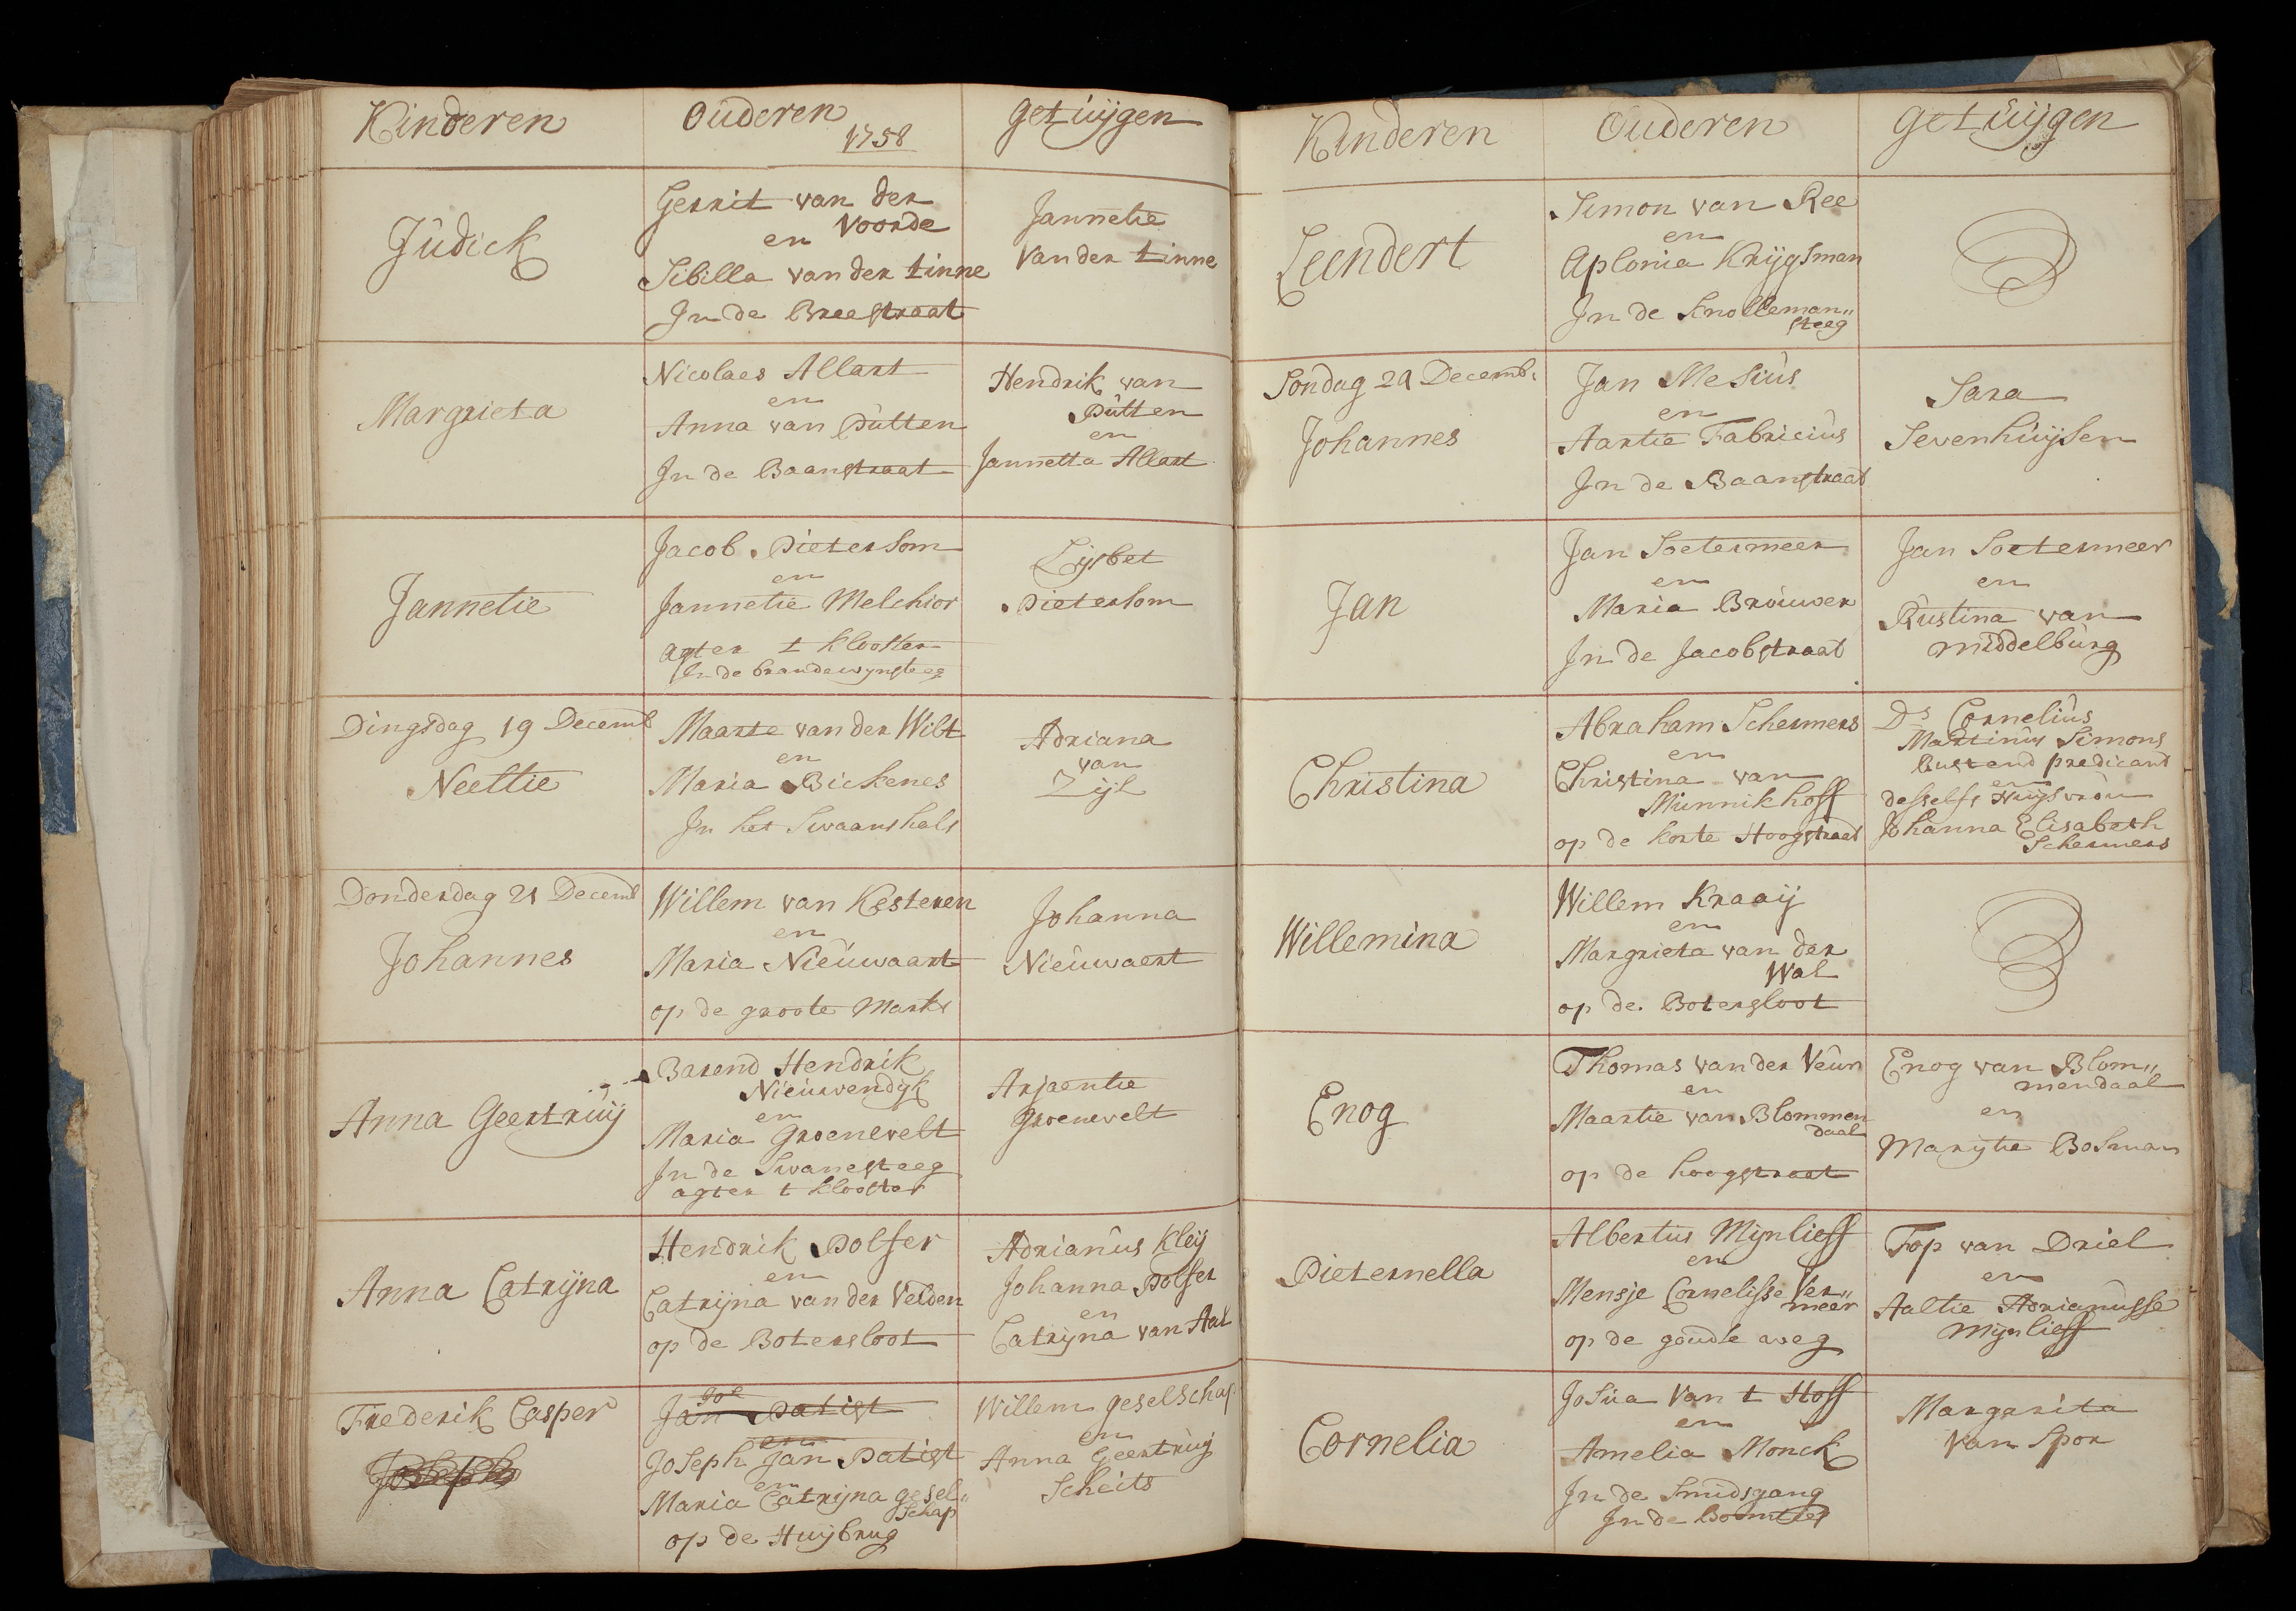 Kinderen
Ouderen
1758
Getuijgen
Judick
Gerrit van der
Voorde
en
Sibilla van der Linne
In de Breestraat
Jannetie
Van der Linne
Margrieta
Nicolaes Allart
en
Anna van Putten
In de Baanstraat
Hendrik van
Putten
en
Jannetta Allart
Jannetie
Jacob Pietersom
en
Jannetie Melchior
agter t klooster
In de brandewijnsteeg
Lijsbet
Pietersom
Dingsdag 19 Decemb
Neeltie
Maarte van der Wilt
en
Maria Bickenes
In het Swaanshals
Adriana
van
Zijl
Donderdag 21 Decemb
Johannes
Willem van Kesteren
en
Maria Nieuwaart
op de groote Markt
Johanna
Nieuwaert
Anna Geertruij
Barend Hendrik
Nieuwendijk
en
Maria Groenevelt
In de Swanesteeg
agter t klooster
Arjaentie
Groenevelt
Anna Catrijna
Hendrik Polser
en
Catrijna van der Velden
op de Botersloot
Adrianus Kleij
Johanna Polser
en
Catrijna van Aal
Frederik Casper
Joseph
Jos
Jan Patist
en
Joseph Jan Patist
en
Maria Catrijna gesel„
schap
op de Huijbrug
Willem geselschap
en
Anna Geertruij
Scheits
Kinderen
Ouderen
Getuijgen
Leendert
Simon van Ree
en
Aplonia Krijgsman
In de Snolleman„
steeg
Sondag 24 Decemb.
Johannes
Jan Mesius
en
Aartie Fabricius
In de Baanstraat
Sara
Sevenhuijsen
Jan
Jan Soetermeer
en
Maria Brouwer
In de Jacobstraat
Jan Soetermeer
en
Rustina van
Middelburg
Christina
Abraham Schermers
en
Christina van
Munnikhoff
op de korte Hoogstraat
Ds Cornelius
Martinus Simons
Rustend predicant
en
desselfs Huijsvrou
Johanna Elisabeth
Schermers
Willemina
Willem Kraaij
en
Margrieta van der
Wal
op de Botersloot
Enog
Thomas van der Veur
en
Maartie van Blommen
daal
op de hoogstraat
Enog van Blom„
mendaal
en
Marijtie Bosman
Pieternella
Albertus Mijnlieff
en
Mensje Cornelisse Ver„
meer
op de goudse weg
Fop van Driel
en
Aaltie Adrianusse
Mijnlieff
Cornelia
Josua Van t Hoff
en
Amelia Monck
In de Smidsgang
In de
Margarita
Van Spor